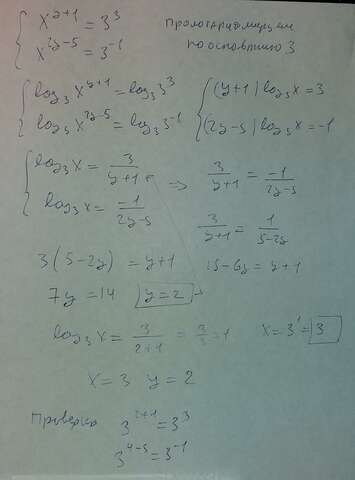 { x^{y+1} = 3^3
x^{2y-5} = 3^{-1}
Прологарифмируем
по основанию 3
{ log_3 x^{y+1} = log_3 3^3
log_3 x^{2y-5} = log_3 3^{-1}
{ (y+1) log_3 x = 3
(2y-5) log_3 x = -1
{ log_3 x = 3/(y+1)
log_3 x = -1/(2y-5)
=> 3/(y+1) = -1/(2y-5)
3/(y+1) = 1/(5-2y)
3(5-2y) = y+1 15-6y = y+1
7y = 14 y = 2
log_3 x = 3/(2+1) = 3/3 = 1 x = 3^1 = 3
x = 3 y = 2
Проверка 3^{2+1} = 3^3
3^{4-5} = 3^{-1}